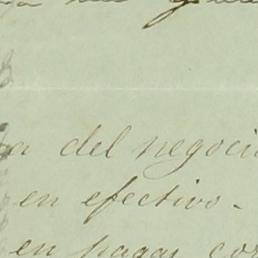 a del negoci
en efectivo.
en pagar cor